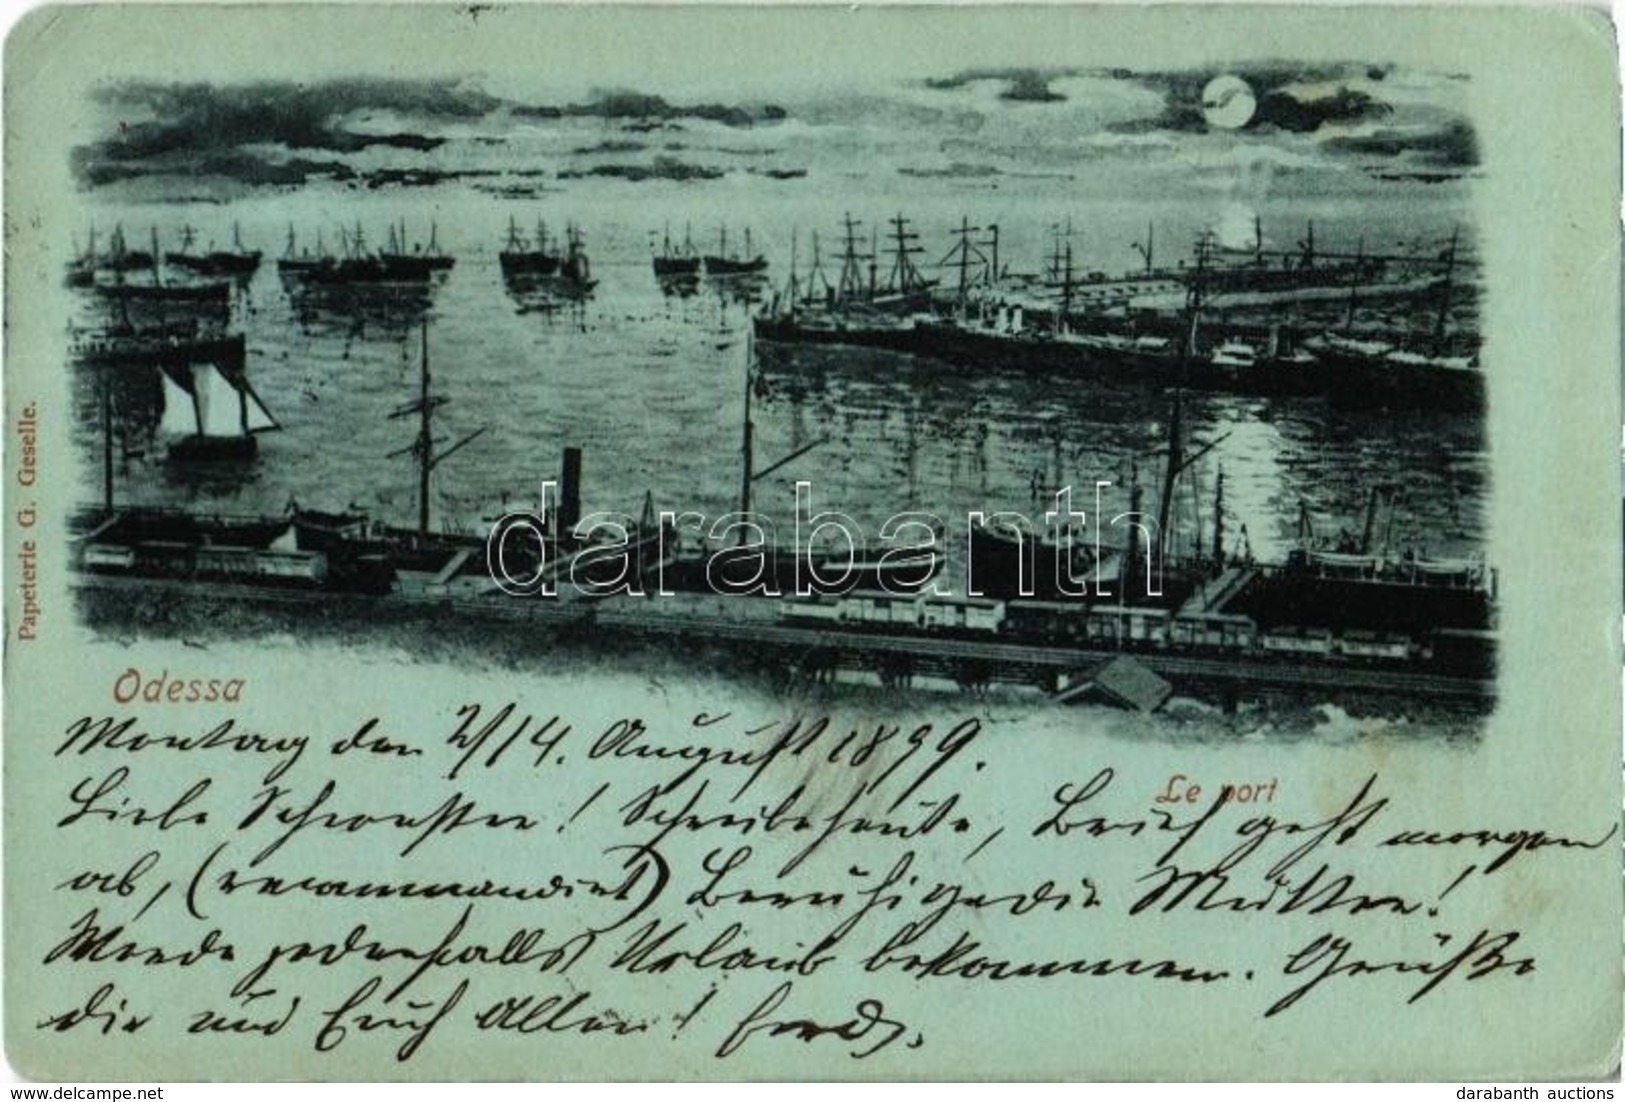 Papeterie G. Geselle.
Odessa
Le port
darabanth
Montag den 2/14. August 1899.
Liebe Schwester! Schreibe heute, Brief geht morgen
ab, (recommandirt) Beruhige die Mutter!
Werde jedenfalls Urlaub bekommen. Grüße
die und Euch Allen! Ferd.
delcampe.net
darabanth auctions